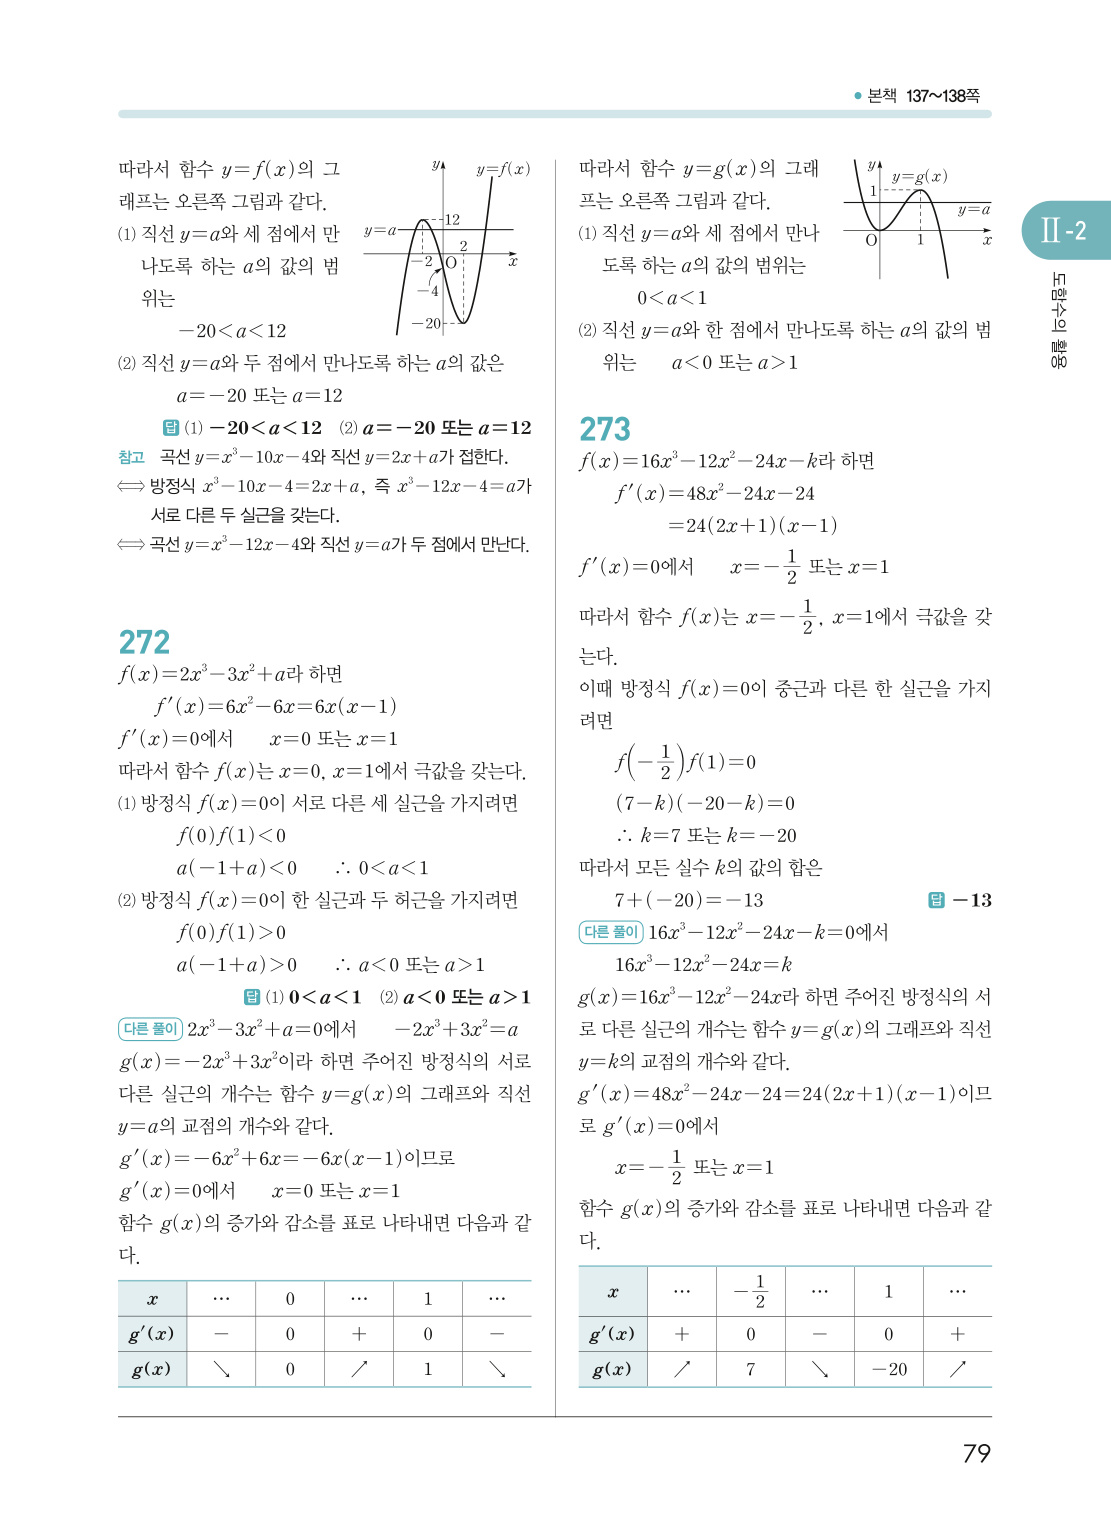 • 본책 137~138쪽
따라서 함수 y=f(x)의 그
래프는 오른쪽 그림과 같다.
⑴ 직선 y=a와 세 점에서 만
나도록 하는 a의 값의 범
위는
-20<a<12
y
y=f(x)
12
y=a
2
-2
O
x
-4
-20
⑵ 직선 y=a와 두 점에서 만나도록 하는 a의 값은
a=-20 또는 a=12
답 ⑴ -20<a<12 ⑵ a=-20 또는 a=12
참고 곡선 y=x³-10x-4와 직선 y=2x+a가 접한다.
⟺ 방정식 x³-10x-4=2x+a, 즉 x³-12x-4=a가
서로 다른 두 실근을 갖는다.
⟺ 곡선 y=x³-12x-4와 직선 y=a가 두 점에서 만난다.
272
f(x)=2x³-3x²+a라 하면
f′(x)=6x²-6x=6x(x-1)
f′(x)=0에서 x=0 또는 x=1
따라서 함수 f(x)는 x=0, x=1에서 극값을 갖는다.
⑴ 방정식 f(x)=0이 서로 다른 세 실근을 가지려면
f(0)f(1)<0
a(-1+a)<0 ∴ 0<a<1
⑵ 방정식 f(x)=0이 한 실근과 두 허근을 가지려면
f(0)f(1)>0
a(-1+a)>0 ∴ a<0 또는 a>1
답 ⑴ 0<a<1 ⑵ a<0 또는 a>1
다른 풀이 2x³-3x²+a=0에서 -2x³+3x²=a
g(x)=-2x³+3x²이라 하면 주어진 방정식의 서로
다른 실근의 개수는 함수 y=g(x)의 그래프와 직선
y=a의 교점의 개수와 같다.
g′(x)=-6x²+6x=-6x(x-1)이므로
g′(x)=0에서 x=0 또는 x=1
함수 g(x)의 증가와 감소를 표로 나타내면 다음과 같
다.
x … 0 … 1 …
g′(x) - 0 + 0 -
g(x) ↘ 0 ↗ 1 ↘
따라서 함수 y=g(x)의 그래
프는 오른쪽 그림과 같다.
⑴ 직선 y=a와 세 점에서 만나
도록 하는 a의 값의 범위는
0<a<1
y
y=g(x)
1
y=a
O
1
x
⑵ 직선 y=a와 한 점에서 만나도록 하는 a의 값의 범
위는 a<0 또는 a>1
273
f(x)=16x³-12x²-24x-k라 하면
f′(x)=48x²-24x-24
=24(2x+1)(x-1)
f′(x)=0에서 x=-1/2 또는 x=1
따라서 함수 f(x)는 x=-1/2, x=1에서 극값을 갖
는다.
이때 방정식 f(x)=0이 중근과 다른 한 실근을 가지
려면
f(-1/2)f(1)=0
(7-k)(-20-k)=0
∴ k=7 또는 k=-20
따라서 모든 실수 k의 값의 합은
7+(-20)=-13 답 -13
다른 풀이 16x³-12x²-24x-k=0에서
16x³-12x²-24x=k
g(x)=16x³-12x²-24x라 하면 주어진 방정식의 서
로 다른 실근의 개수는 함수 y=g(x)의 그래프와 직선
y=k의 교점의 개수와 같다.
g′(x)=48x²-24x-24=24(2x+1)(x-1)이므
로 g′(x)=0에서
x=-1/2 또는 x=1
함수 g(x)의 증가와 감소를 표로 나타내면 다음과 같
다.
x … -1/2 … 1 …
g′(x) + 0 - 0 +
g(x) ↗ 7 ↘ -20 ↗
Ⅱ-2
도함수의 활용
79